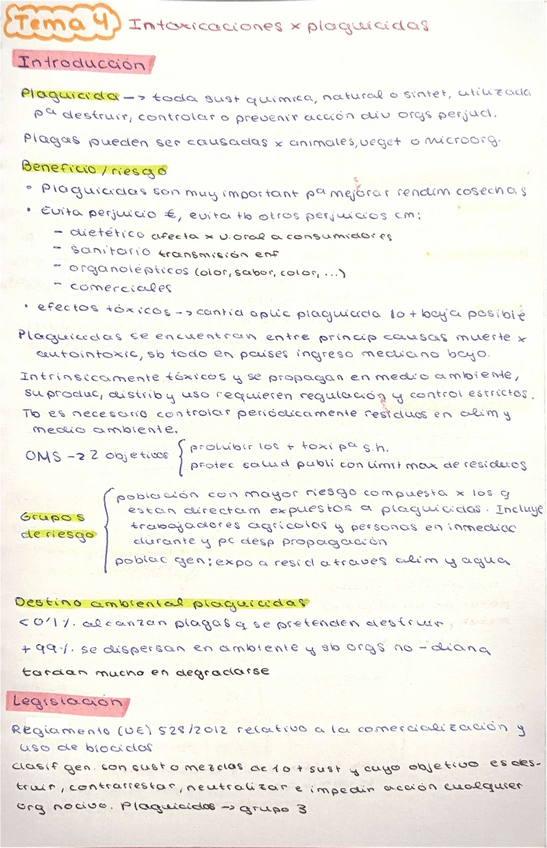 Tema 4 Intoxicaciones x plaguicidas
Introducción
Plaguicida -> toda sust química, natural o sintet, utilizada
pª destruir, controlar o prevenir acción div orgs perjud.
Plagas pueden ser causadas x animales, veget o microorg.
Beneficio/riesgo
• Plaguicidas son muy important pª mejorar rendim cosechas
• Evita perjuicio €, evita tb otros perjuicios cm:
- dietético afecta x v.oral a consumidores
- sanitario transmisión enf
- organolépticos (olor, sabor, color, ...)
- comerciales
• efectos tóxicos -> cantid aplic plaguicida lo + baja posible
Plaguicidas se encuentran entre princip causas muerte x
autointoxic, sb todo en países ingreso mediano bajo.
Intrínsicamente tóxicos y se propagan en medio ambiente,
su produc, distrib y uso requieren regulación y control estrictos.
Tb es necesario controlar periódicamente residuos en alim y
medio ambiente.
OMS -> 2 objetivos { prohibir los + toxi pª s.h.
protec salud publi con limit max de residuos
Grupos de riesgo { población con mayor riesgo compuesta x los q
estan directam expuestos a plaguicidas. Incluye
trabajadores agrícolas y personas en inmediac
durante y pc desp propagación
poblac gen: expo a resid a traves alim y agua
Destino ambiental plaguicidas
<0'1% alcanzan plagas q se pretenden destruir
+99% se dispersan en ambiente y sb orgs no-diana
tardan mucho en degradarse
Legislación
Reglamento (UE) 528/2012 relativo a la comercialización y
uso de biocidas
clasif gen. son sust o mezclas de 1 o + sust y cuyo objetivo es des-
truir, contrarrestar, neutralizar e impedir acción cualquier
org nocivo. Plaguicidas -> grupo 3